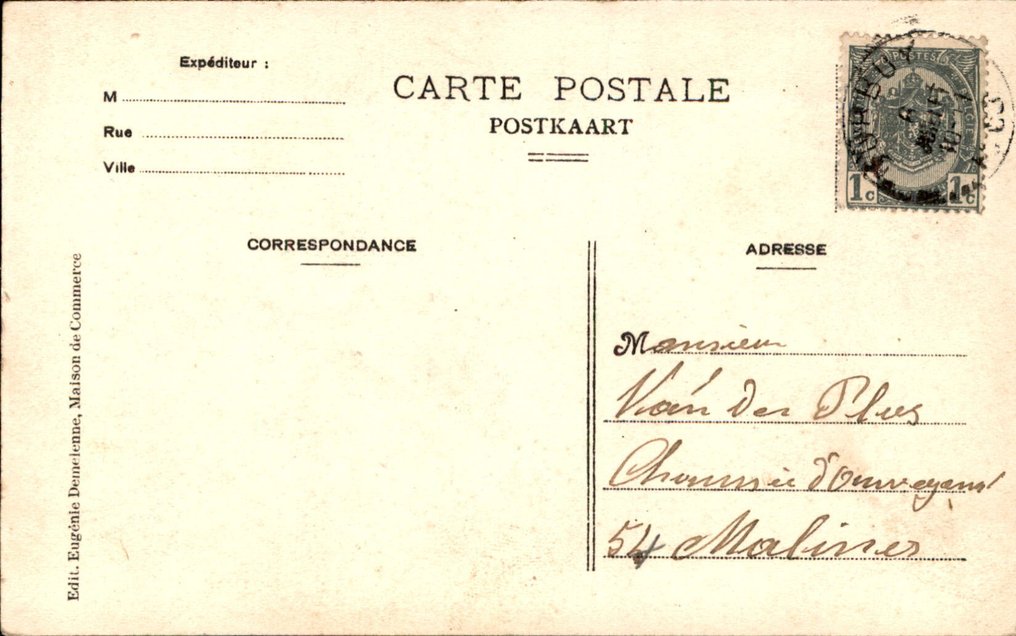 Expéditeur :
M
Rue
Ville
CARTE POSTALE
POSTKAART
POSTES
1c 1c
CORRESPONDANCE
ADRESSE
Monsieur
Van der Plus
Chaussée
54 Malines
Edit. Eugénie Demelenne, Maison de Commerce